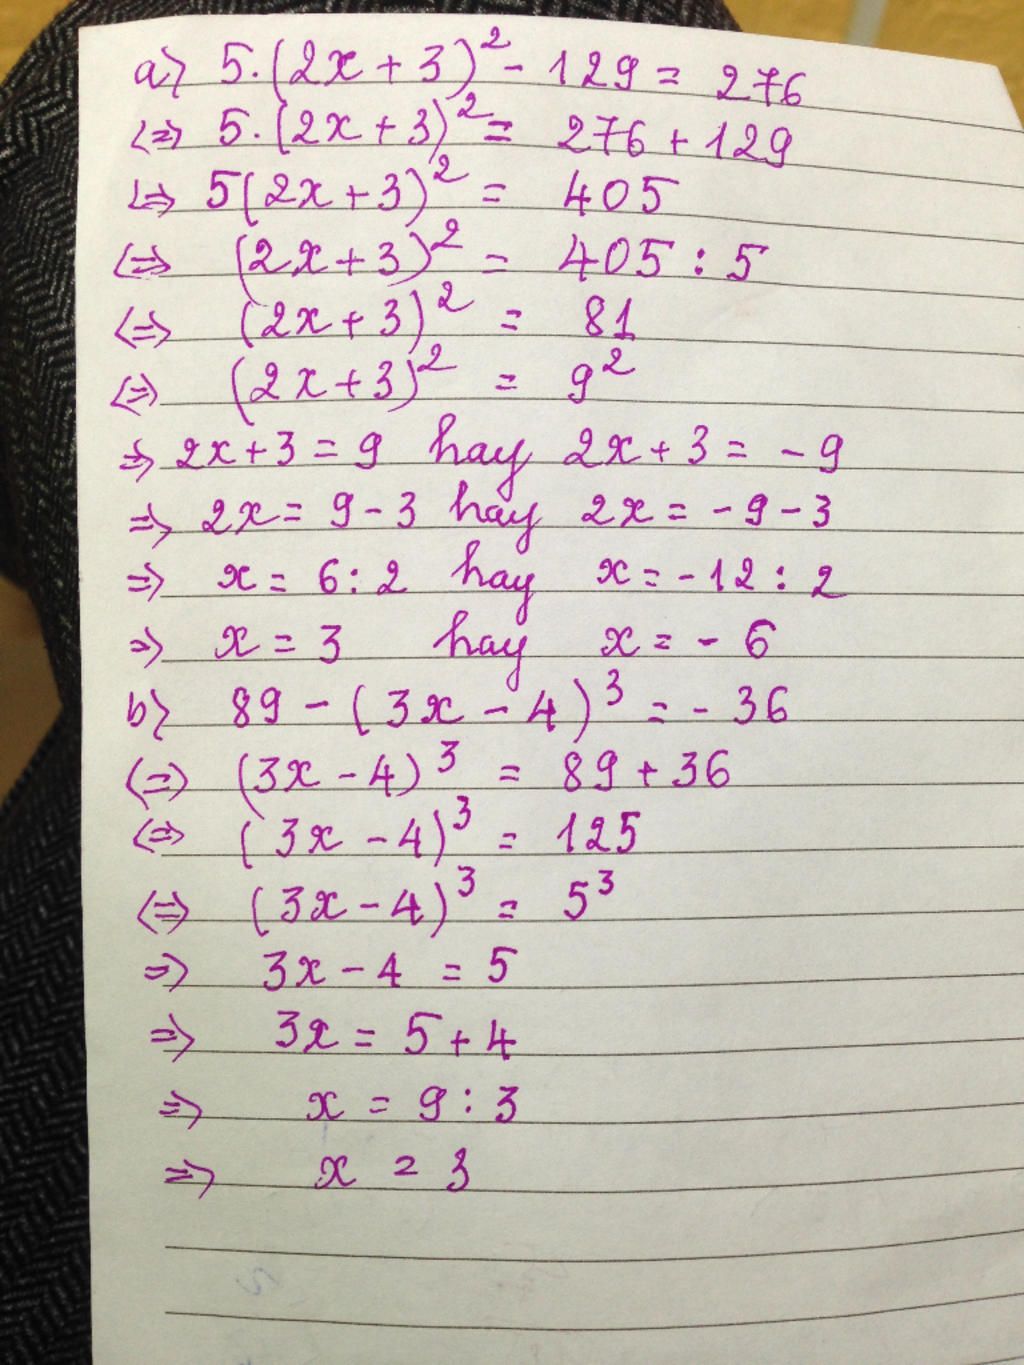 a) 5.(2x + 3)² - 129 = 276
<=> 5.(2x + 3)² = 276 + 129
<=> 5(2x + 3)² = 405
<=> (2x + 3)² = 405 : 5
<=> (2x + 3)² = 81
<=> (2x + 3)² = 9²
=> 2x + 3 = 9 hay 2x + 3 = - 9
=> 2x = 9 - 3 hay 2x = - 9 - 3
=> x = 6 : 2 hay x = - 12 : 2
=> x = 3 hay x = - 6
b) 89 - (3x - 4)³ = - 36
<=> (3x - 4)³ = 89 + 36
<=> (3x - 4)³ = 125
<=> (3x - 4)³ = 5³
=> 3x - 4 = 5
=> 3x = 5 + 4
=> x = 9 : 3
=> x = 3